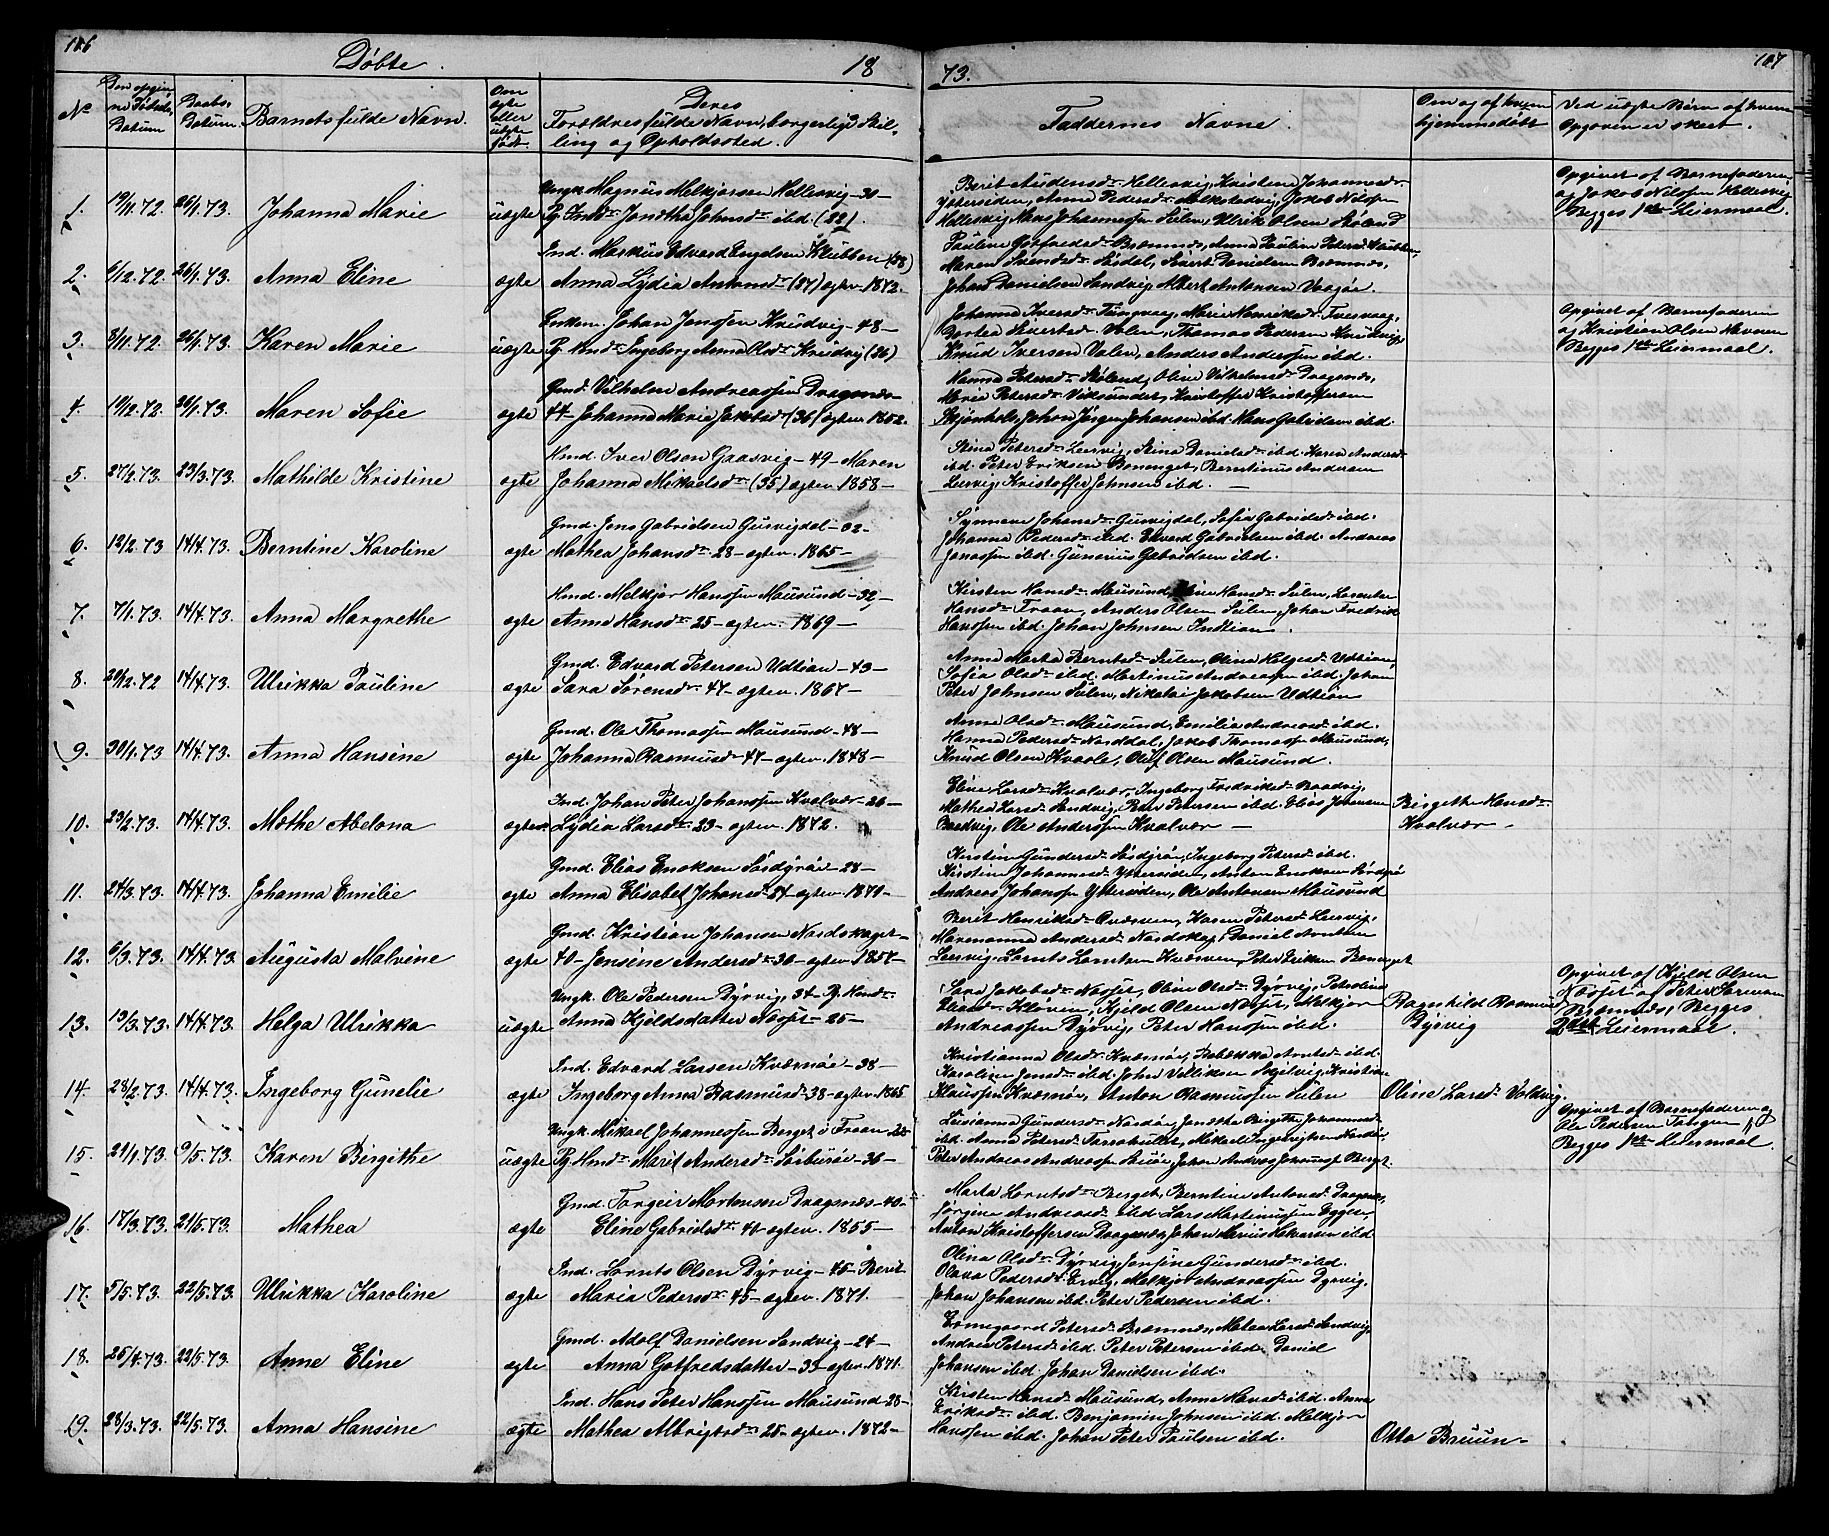 106
Døbte.
18
73.
107
No
Den opgivne Fødsels Datum
Daabs Datum
Barnets fulde Navn.
Om ægte eller uægte født.
Deres Forældres fulde Navn, borgerlige Stilling og Opholdssted.
Faddernes Navne.
Om og af hvem hjemmedøbt
Ved uægte Børn af hvem Opgaven er skeet.
1. 19/11.72. 26/1.73. Johanna Marie uægte
Ungk. Magnus Melkjorsen Hellesvig - 30 -
Pg. Ind. Jonetha Johnsd. ibid. (22).
Berit Andersd. Hellesvig, Kirsten Johannesd.
Ydersiden, Anna Pedersd. Jakob Nilsen
Hellesvig, Hans Johannessen Sulen, Ulrik Olsen Støland
Opgivet af Barnefaderen
og Jakob Nilsen Hellesvig
Begges 1ste Leiermaal.
2. 6/12.72. 26/1.73. Anna Eline ægte
Ind. Markus Edvard Engelsen Klubben (48)
Anna Lydia Antonsd. (24) ægtev. 1872.
Pauline Gotfredsd. Bremnes, Anna Pauline Petersd. Klubben,
Maren Svendsd. Sørdal, Sivert Danielsen Bremnes,
Johan Danielsen Sandvig, Albert Antonsen Vaagø.
3. 8/11.72. 26/1.73. Karen Marie uægte
Enkem. Johan Jenssen Knudvig - 48 -
Pg. Ind. Ingeborg Anna Olsd. Knudvig (26)
Johanna Iversd. Tungvaag, Marie Henriksd. Tuevaag,
Dortea Sivertsd. Valen, Thomas Pedersen Knudvig,
Knud Iversen Valen, Anders Anderssen ibd.
Opgivet af Barnefaderen
og Kristian Olsen Havnen
Begges 1ste Leiermaal.
4. 19/12.72. 26/1.73. Maren Sofie ægte
Gmd. Vilhelm Andreassen Dragsnes
44 - Johanna Marie Jakobsd. (36) ægtev. 1862.
Hanna Petersd. Støland, Oline Vilhelmsd. Dragsnes,
Marie Petersd. Viksundet, Kristoffer Kristoffersen
Skjønhals, Johan Jørgen Johansen ibd. Hans Gabrielsen ibd.
5. 27/2.73. 23/3.73. Mathilde Kristine ægte
Hmd. Iver Olsen Gaasvig - 49 - Maren
Johanna Mikaelsd. (35) ægtev. 1858 -
Stina Petersd. Leervig, Stina Danielsd. ibd. Karen Andersd.
ibd. Peter Eriksen Bonenget, Berntinus Andersen
Leervig, Kristoffer Johnsen ibd. -
6. 13/2.73 14/4.73. Berntine Karoline ægte
Gmd. Jens Gabrielsen Gurvigdal - 32 -
Mathea Johansd. 28 - ægtev. 1865 -
Synneve Johansd. Gurvigdal, Sofie Gabrielsd. ibd.
Johanna Pedersd. ibd. Edvard Gabrielsen ibd. Andreas
Jonassen ibd. Gunerius Gabrielsen ibd.
7. 7/1.73. 14/4.73. Anna Margrethe ægte
Hmd. Melkjor Hanssen Mausund - 32 -
Anne Hansd. 25 - ægtev. 1869 -
Kirsten Hansd. Mausund, Hansd. Sulen, Lorentse
Hansd. Fraan, Anders Olsen Sulen, Johan Fredrik
Hanssen ibd. Johan Johnsen Indtian.
8. 29/12.72 14/4.73. Ulrikka Pauline ægte
Gmd. Edvard Petersen Udtian - 43 -
Sara Sørensd. 44 - ægtev. 1867 -
Anne Marta Berntsd. Sulen, Oline Helgesd. Udtian,
Sofia Olsd. ibd. Martinus Andreassen ibd. Johan
Peter Johnsen Sulen, Nikolai Jakobsen Udtian
9. 30/1.73 14/4.73. Anna Hansine ægte
Gmd. Ole Thomassen Mausund - 48 -
Johanna Rasmusd. 47 - ægtev. 1848 -
Anne Olsd. Mausund, Emilie Andreasd. ibd.
Hanna Pedersd. Norddal, Jakob Thomassen Mausund,
Knud Olsen Kvaale, Oluf Olsen Mausund.
10. 23/2.73. 14/4.73. Mæthe Abelona ægte
Ind. Johan Peter Johanssen Kvalvær - 26 -
Lydia Larsd. 23 - ægtev. 1872.
Eline Larsd. Kvalvær, Ingeborg Fredriksd. Baadvig,
Mathea Larsd. Sandvig, Peter Petersen ibd. Elias Johnsen
Baadvig, Ole Anderssen Kvalvær -
Birgethe Hansd.
Kvalvær -
11. 24/3.73. 14/4.73. Johanna Emilie ægte
Gmd. Elias Enoksen Sørdyrøi - 28 -
Anna Elisabet Johansd. 24 - ægtev. 1870 -
Kirstine Gundersd. Sørdyrøi, Ingeborg Petersd. ibd.
Kirstine Johannesd. Ydersiden, Anton Enoksen Sørdyrøi
Andreas Johansen Ydersiden, Ole Antonsen Mausund
12. 6/3.73. 14/4.73. Augusta Malvine ægte
Gmd. Kristian Johansen Nordskaget -
40 - Jensine Andersd. 30 - ægtev. 1857 -
Berit Henriksd. Kværven, Karen Petersd. Leervig,
Marenanna Andersd. Nordskag, Daniel Arntsen
Leervig, Lornts Larntsen Kværven, Peter Eriksen Bonenget
13. 13/3.73. 14/4.73. Helga Ulrikka uægte
Ungk. Ole Pedersen Dyrvig, 34 - Pg. Ind.
Anna Kjeldsdatter Nesset - 25 -
Sara Jakobsd. Nesset, Oline Olsd. Dyrvig, Peteoline
Eliasd. Kløven, Kjeld Olsen Nesset, Melkjor
Andreassen Dyrvig, Peter Hanssen ibd.
Ragnhild Rasmusd.
Dyrvig
Opgivet af Kjeld Olsen
Nesset og Peter Larsen
Bremnes, Begges
2det Leiermaal.
14. 28/2.73. 14/4.73. Ingeborg Gunelie ægte
Ind. Edvard Larsen Kværnøi - 38 -
Ingeborg Anna Rasmusd. 38 - ægtev. 1865
Kristianna Olsd. Kværnøi, Rebekka Arntsd. ibd.
Karoline Jensd. ibd. John Velliksen Kristian
Klaussen Kværnøi, Anton Rasmussen Sulen
Oline Larsd. Valvig.
15. 29/1.73. 9/5.73. Karen Birgithe uægte
Ungk. Mikael Johannessen Berget i Fraan 25
Pg. Ind. Marit Andersd. Sørburøi - 30 -
Lusianna Gundersd. Nordøi, Jonetha Birgithe Johannesd.
ibd. Anne Petersd. Mikael Ingebrigtsen Nordøi,
Peter Andreas Andreassen Sauøi, Johan Andreas Johannesen Berget.
Opgivet af Barnefaderen og
Ole Pedersen
Begges 1ste Leiermaal.
16. 17/3.73. 21/5.73. Mathea ægte
Gmd. Torgeir Mortensen Dragsnes - 40 -
Eline Gabrielsd. 40 - ægtev. 1855 -
Marta Lorntsd. Berget, Berntine Antonsd. Dragsnes,
Jørgine Andreasd. ibd. Lars Martinussen Eggen,
Anton Kristoffersen Dragsnes, Johan Marius Halvorsen ibd.
17. 5/5.73. 22/5.73. Ulrikka Karoline ægte
Ind. Lornts Olsen Dyrvig - 45 - Berit
Maria Pedersd. 45 - ægtev. 1871.
Olina Olsd. Dyrvig, Jensine Gundersd. ibd.
Olava Pedersd. Ervig, Melkjor Andreassen Dyrvig,
Johan Johansen ibd. Peter Pedersen ibd.
18. 25/4.73. 22/5.73. Anne Eline ægte
Gmd. Adolf Danielsen Sandvig - 24 -
Anna Gotfredsdatter - 33 - ægtev. 1871.
Ermegaard Petersd. Bremnes, Matea Larsd. Sandvig,
Andrea Petersd. ibd. Peter Petersen ibd. Daniel
Johansen ibd. Johan Danielsen ibd.
19. 28/3.73. 22/5.73. Anna Hansine ægte
Ind. Hans Peter Hanssen Mausund - 28 -
Mathea Albrigtsd. 25 - ægtev. 1872 -
Kirsten Hansd. Mausund, Anne Hansd. ibd. Anna
Eriksd. ibd. Benjamin Johnsen ibd. Melkjor
Hanssen ibd. Johan Peter Paulsen ibd.
Otto Bruun -